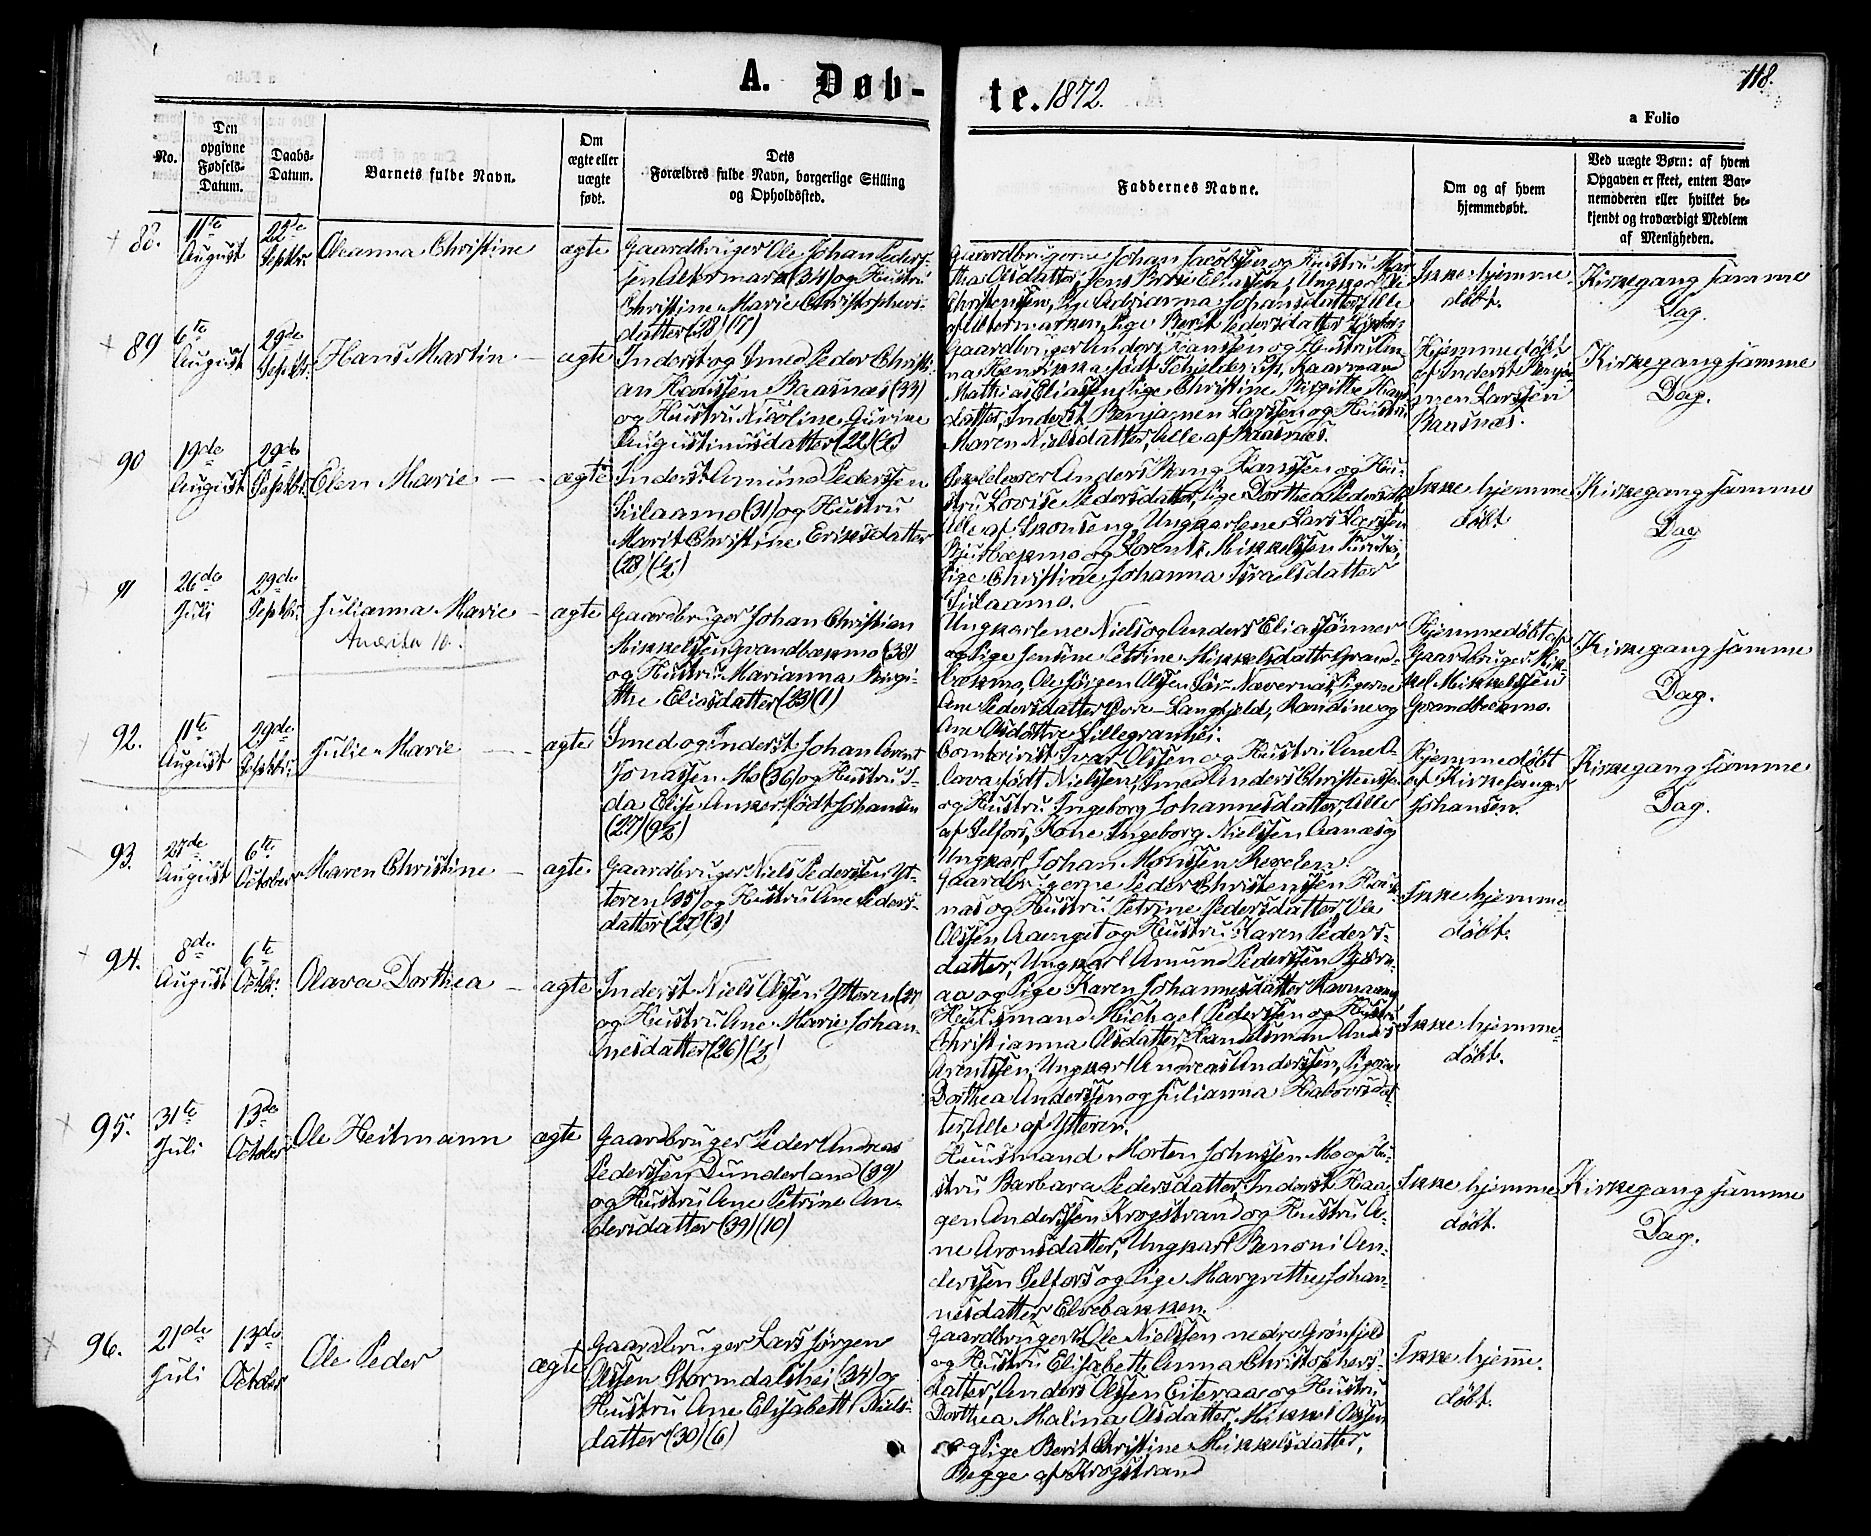 A. Døb-
te. 1872.
118.
a Folio
No.
Den opgivne Fødsels-Datum.
Daabs-Datum.
Barnets fulde Navn.
Om ægte eller uægte født.
Dets Forældres fulde Navn, borgerlige Stilling og Opholdssted.
Faddernes Navne.
Om og af hvem hjemmedøbt.
Ved uægte Børn: af hvem Opgaven er skeet, enten Barnemoderen eller hvilket bekjendt og troværdigt Medlem af Menigheden.
88.
11te August
22de Septbr.
Oleanna Christine
ægte
Gaardbruger Ole Johan Peders-
sen Altermark (34) og Hustru
Christine Marie Christophers-
datter (28) (7)
Gaardbrugerne Johan Jacobssen og Hustru Mar-
tha Olsdatter, Jens Eliassen, Ungkarl
Christenssen, Pige Adrianna Johansdatter, Alle
af Altermarken, Pige Berit Pedersdatter
Ikke hjemme
døbt.
Kirkegang samme
Dag.
89
6te August
29de Septbr.
Hans Martin
ægte
Inderst og Smed Peder Christi-
an Hanssen Baasnæs (33)
og Hustru Nicoline Gurine
Augustinusdatter (22) (½)
Gaardbruger Anders Hanssen og Hustru An-
na Henrikka født Schjelderup, Kaarmand
Mathias Eliassen, Pige Christine Birgitte Hans-
datter, Inderst Benjamen Larssen og Hustru
Maren Nielsdatter, Alle af Baasnæs.
Hjemmedøbt
af Inderst Benja-
men Larssen
Baasnæs.
Kirkegang samme
Dag.
90
19de August
29de Septbr.
Elen Marie
ægte
Inderst Amund Pederssen
Sislaamo (31) og Hustru
Marit Christine Eriksdatter
(28) (½)
Anders Bang Hanssen og Hu-
stru Lovise Pedersdatter, Pige Dorthea Pedersdtr
Alle af Skonseng, Ungkarlene Lars Larssen
og Lorents Mikkelssen
Pige Christine Johanna Israelsdatter
Sislaamo.
Ikke hjemme-
døbt
Kirkegang samme
Dag
91
26de Juli
29de Septbr.
Julianna Marie
ægte
Gaardbruger Johan Christian
Mikkelssen Grandbækmo (38)
og Hustru Marianna Birgi-
tthe Eliasdatter (23) (1)
Ungkarlene Niels og Anders Eliassønner
og Pige Jensine Pettrine Mikkelsdatter Grand-
bækmo, Ole Jørgen Olssen Sør-Nævernæs, Pigerne
Ane Pedersdatter Øvre-Langfjeld, Randine og
Ane Olsdøttre Lillegranhei.
Hjemmedøbt af
Gaardbruger Mik-
kel Mikkelssen
Grandbækmo.
Kirkegang samme
Dag.
92.
11te August
29de Septbr.
Julie Marie
ægte
Smed og Inderst Johan Arent
Jonassen Mo (36) og Hustru I-
da Elise Anker født Johansen
(27) (9½)
Contorist Ivar Olssen og Hustru Ane O-
lava født Nielssen, Smed Anders Christenssen
og Hustru Ingeborg Johannesdatter, Alle
af Selfors, Kone Ingeborg Nielssen Aanæs og
Ungkarl Johan Monssen Revelen.
Hjemmedøbt
af Kirkesanger
Johansen.
Kirkegang samme
Dag.
93.
27de August
6te October
Maren Christine
ægte
Gaardbruger Niels Pederssen Yt-
teren (35) og Hustru Ane Peders-
datter (27) (3)
Gaardbrugerne Peder Christenssen
næs og Hustru Petrine Pedersdatter, Ole
Olssen Aaengit og Hustru Karen Peders-
datter, Ungkarl Amund Pederssen Bjern-
aa og Pige Karen Johannesdatter Ravnaamyr
Ikke hjemme-
døbt.
94.
8de August
6te Octbr.
Olava Dorthea
ægte
Inderst Niels Olssen Ytteren (27
og Hustru Ane Marie Johan-
nesdatter (26) (½)
Huusmand Michael Pederssen og Hustru
Christianna Olsdatter, Handelsmand Anders
Arentssen, Ungkarl Andreas Anderssen, Pigerne
Dorthea Anderssen og Julianna Halvorsdat-
ter, Alle af Ytteren.
Ikke hjemme-
døbt.
95.
31te Juli
13de October
Ole Heitmann
ægte
Gaardbruger Peder Andreas
Pederssen, Dunderland (39)
og Hustru Ane Petrine An-
dersdatter (39) (10)
Huusmand Morten Johnssen Mo og Hu-
stru Barbara Pedersdatter, Inderst Haa-
gen Anderssen Krogstrand og Hustru A-
ne Aronsdatter, Ungkarl Benoni An-
derssen Selfors og Pige Margrethe Johan-
nesdatter Elvebakken.
Ikke hjemme
døbt.
Kirkegang samme
Dag.
96.
21de Juli
13de October
Ole Peder
ægte
Gaardbruger Lars Jørgen
Olssen Stormdalshei (34) og
Hustru Ane Elisabeth Niels-
datter (30) (6)
Gaardbrugerne Ole Nielssen nedre Grønfjeld
og Hustru Elisabeth Anna Christophers-
datter, Anders Olssen Eiteraa og Hustru
Dorthea Malina Olsdatter, Mikkel Olssen
og Pige Berit Christine Mikkelsdatter,
Begge af Krogstrand
Ikke hjemme.
døbt.